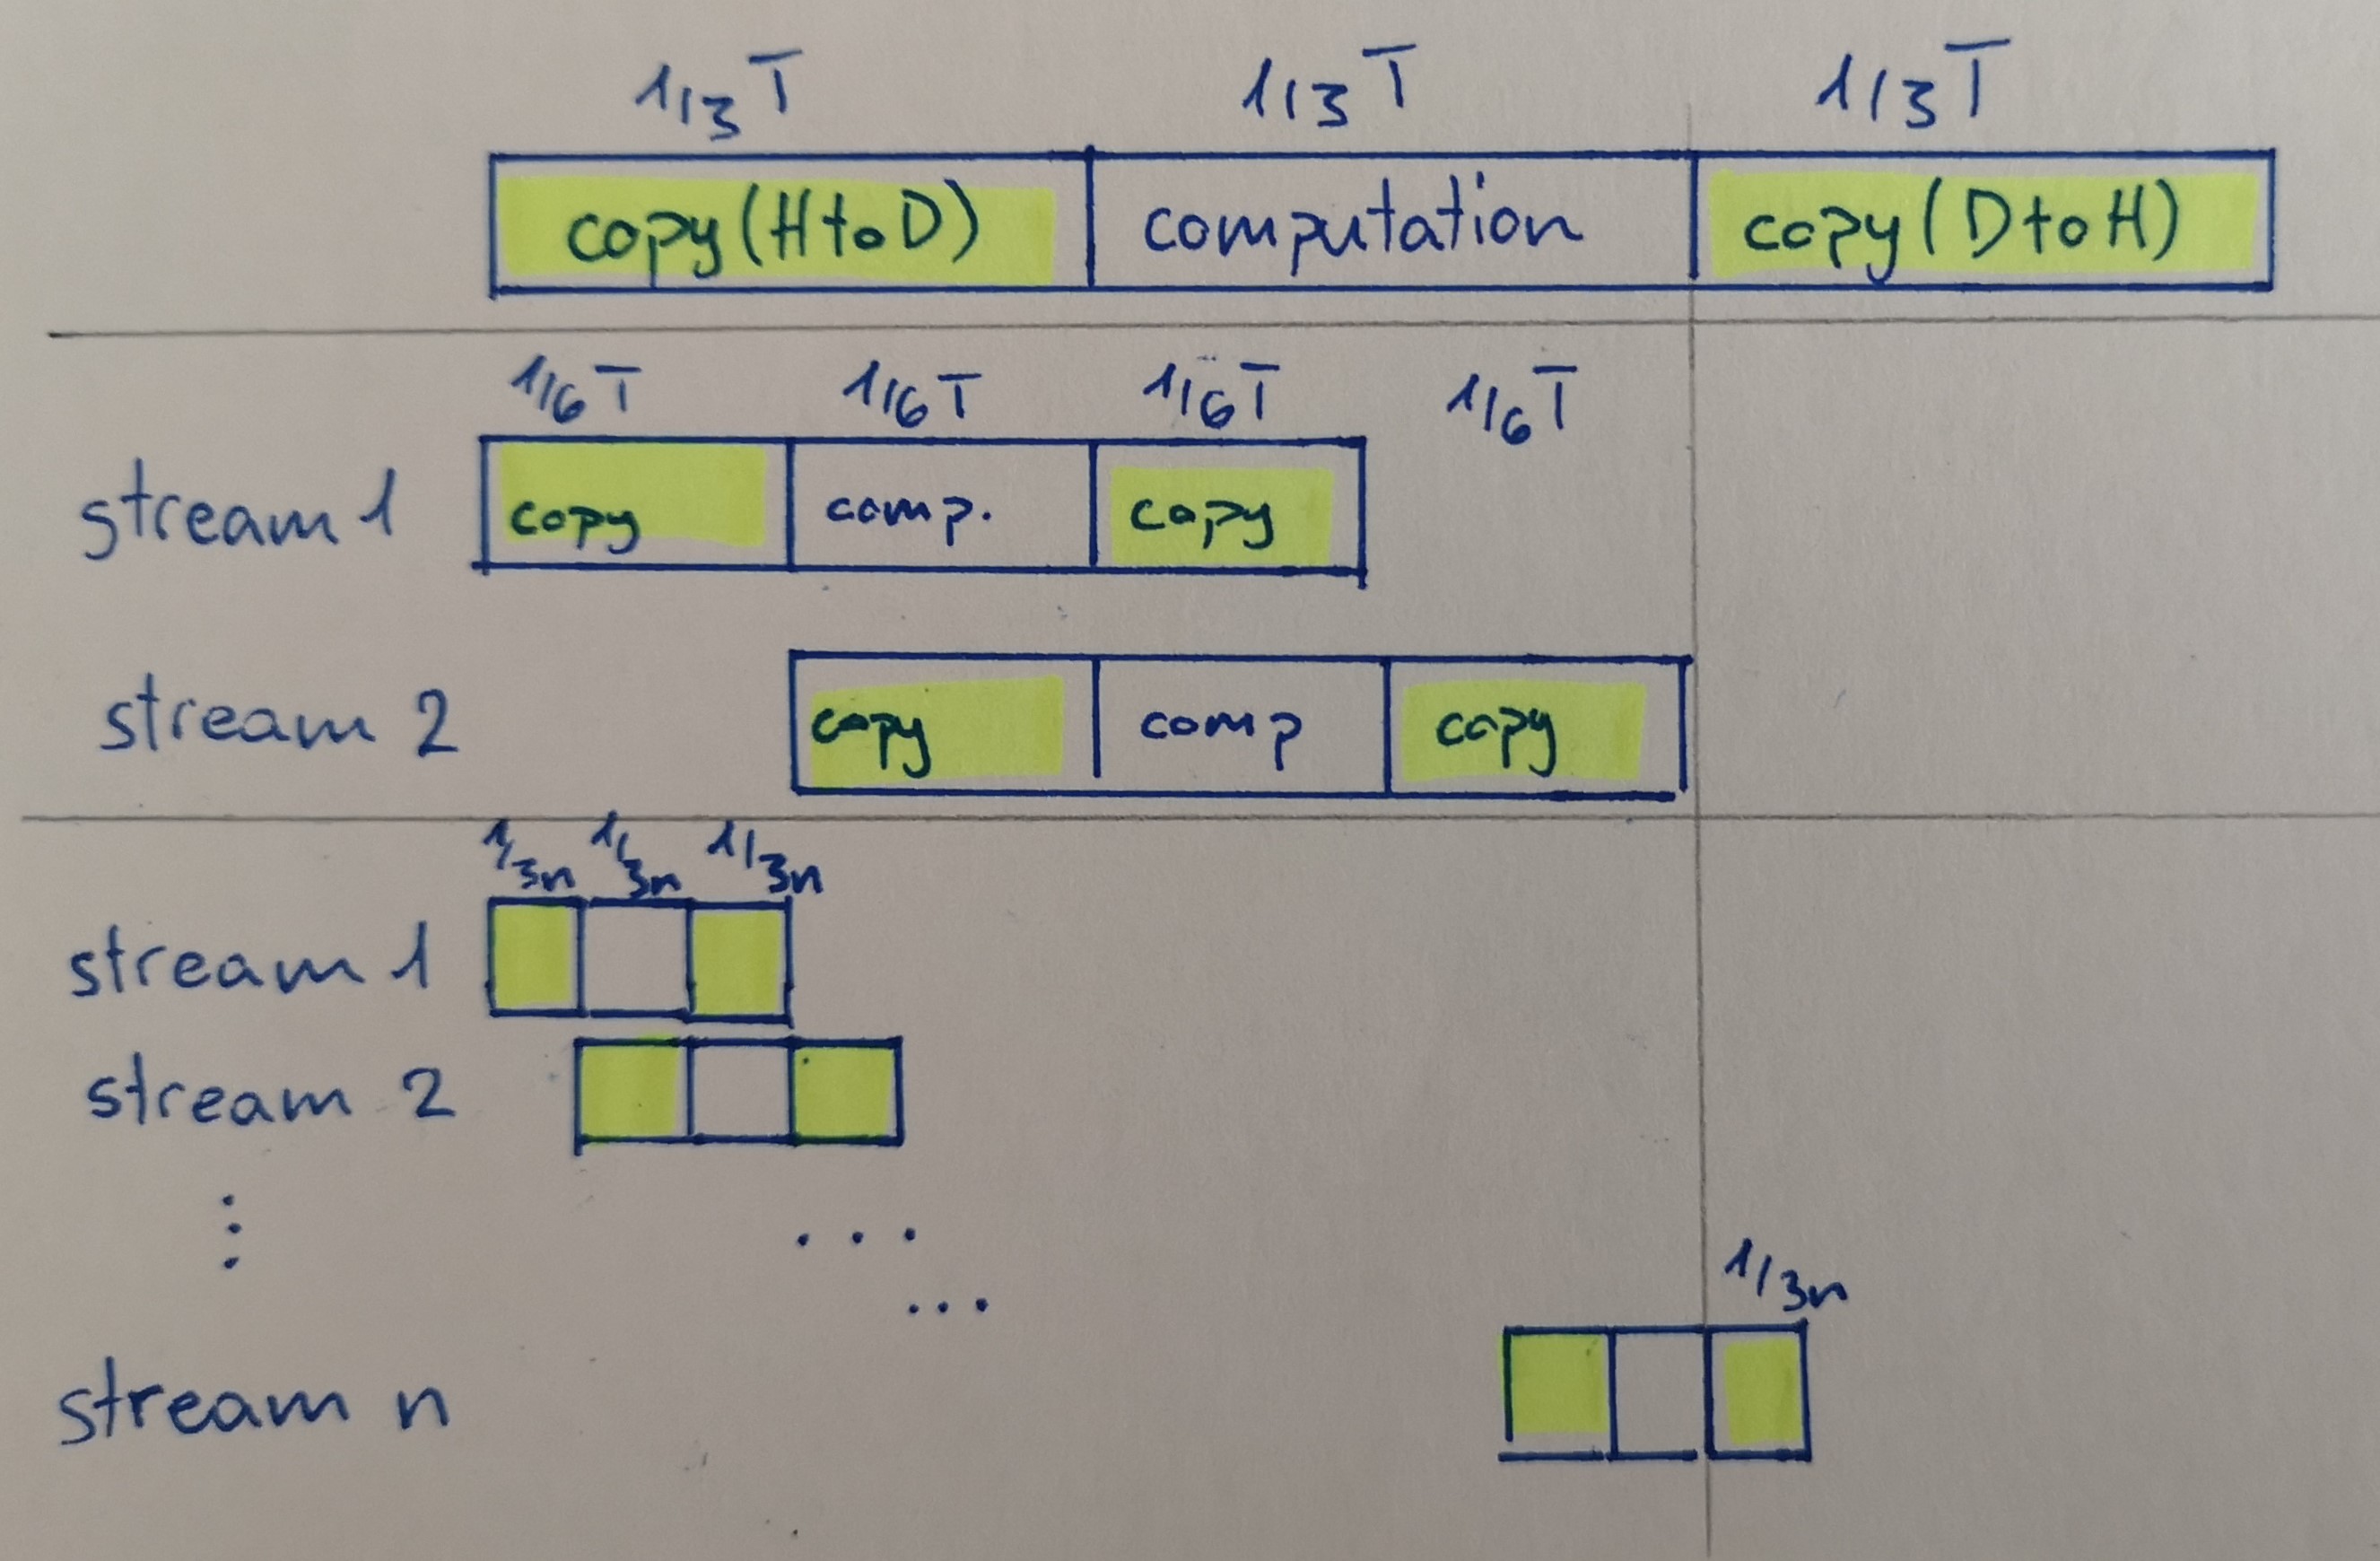 1/3 T 1/3 T 1/3 T
copy (H to D) computation copy (D to H)
1/6 T 1/6 T 1/6 T 1/6 T
stream 1 copy comp. copy
stream 2 copy comp copy
1/3n 1/3n 1/3n
stream 1
stream 2
⋮ ...
...
1/3n
stream n